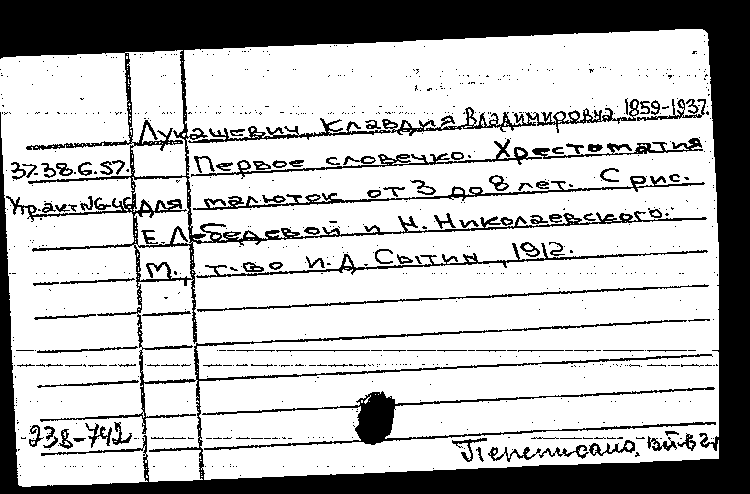 Лукашевич, Клавдия Владимировна, 1859-1937.
37.38.6.57. Первое словечко. Хрестоматия
для малюток от 3 до 8 лет. С рис.
Е. Лебедевой и Н. Николаевского.
М., т-во И.Д. Сытин, 1912.
238-742
Переписано,